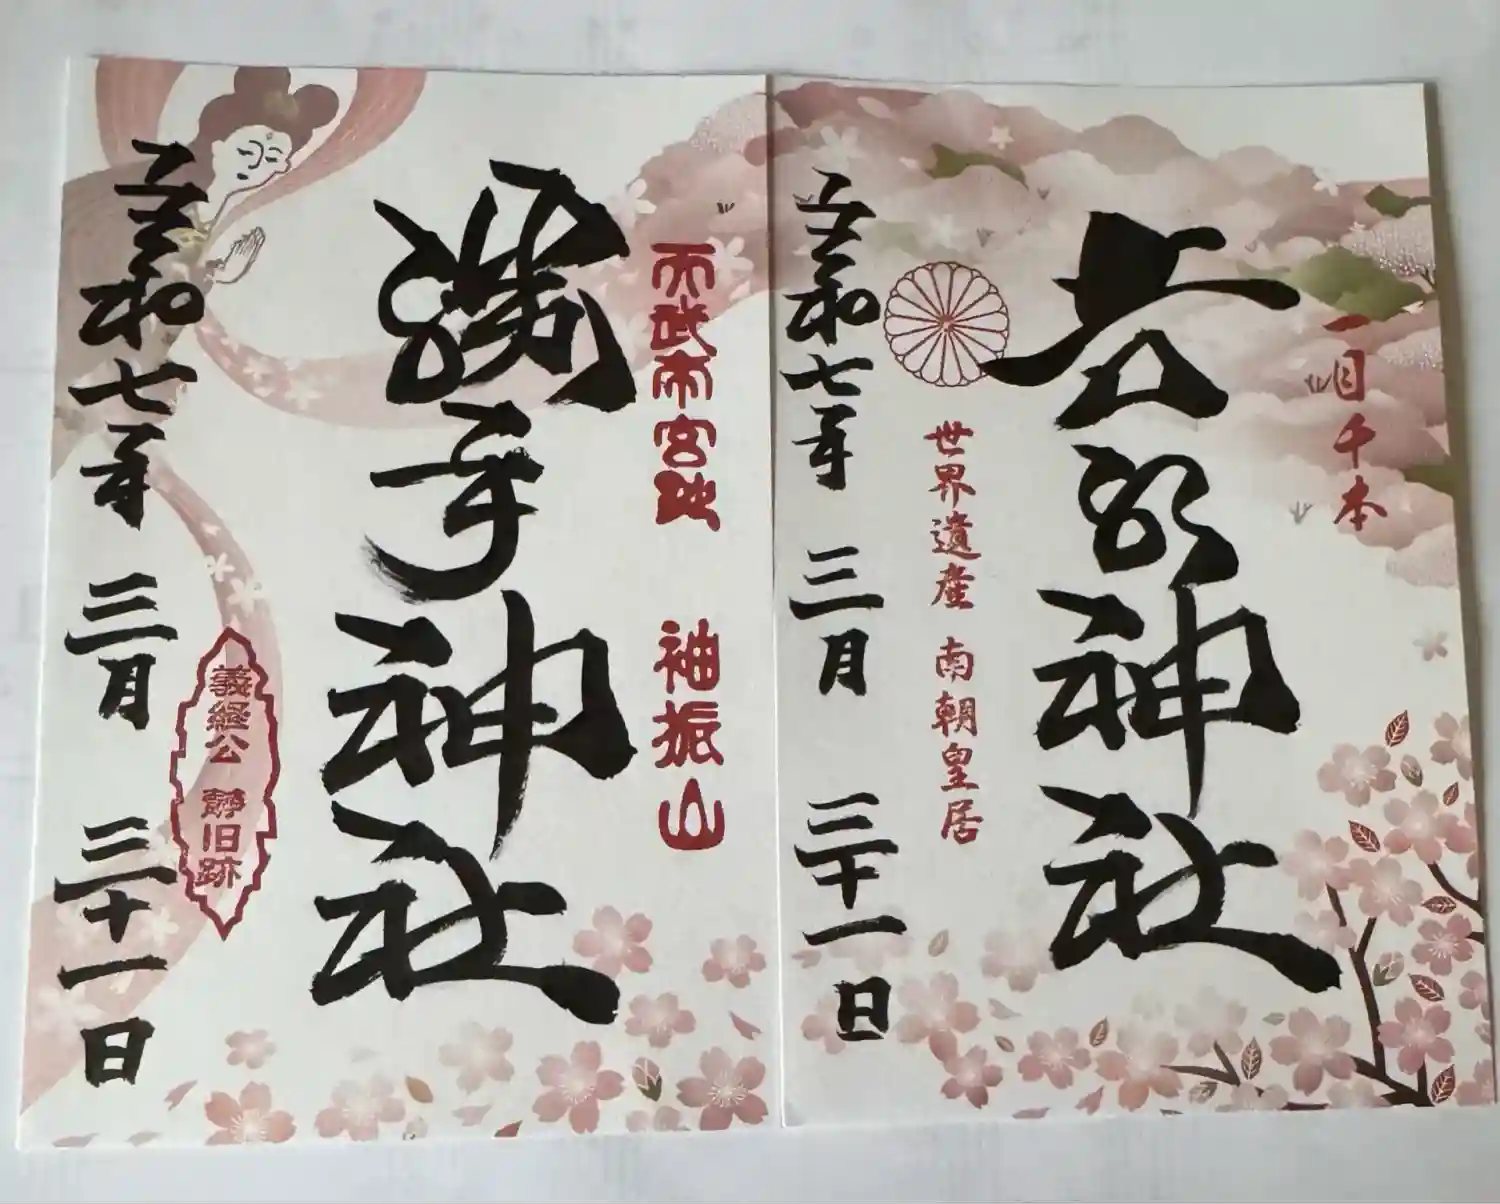 一目千本
吉水神社
世界遺産 南朝皇居
令和七年 三月 三十一日
天武帝宮跡 袖振山
勝手神社
義経公 静旧跡
令和七年 三月 三十一日